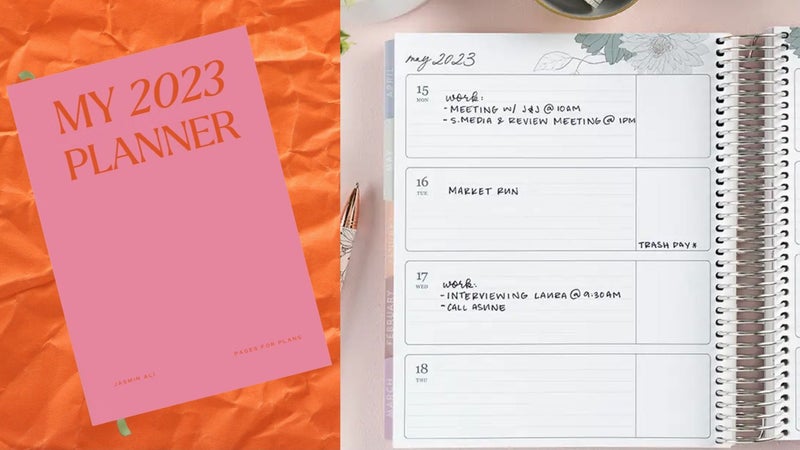 MY 2023
PLANNER
JASMIN ALI
PAGES FOR PLANS
may 2023
15
MON
work:
- MEETING W/ J&J @ 10AM
- S.MEDIA & REVIEW MEETING @ 1PM
16
TUE
MARKET RUN
TRASH DAY*
17
WED
work:
- INTERVIEWING LAURA @ 9:30AM
- CALL
18
THU
APRIL
MAY
JANUARY
FEBRUARY
MARCH